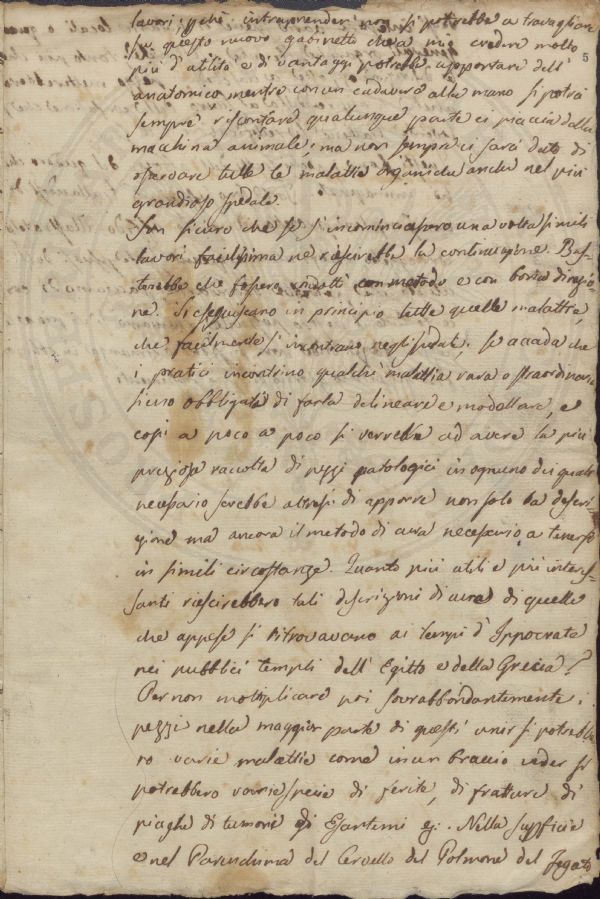 lavori; perché intraprender non si potrebbe a travagliare
su questo nuovo gabinetto che a mio credere molto
5
più d'utilità e di vantaggi potrebbe apportare dell'
anatomico mentre con un cadavere alla mano si potrà
sempre riscontrare qualunque parte ci piaccia della
macchina animale; ma non sempre ci sarà dato di
osservare tutte le malattie organiche anche nel più
grandioso spedale.
Son sicuro che se s'incominciassero una volta simili
lavori facilissima ne riescirebbe la continuazione. Bas-
terebbe che fossero condotti con metodo e con buona direzio-
ne. Si eseguiscano in principio tutte quelle malattie,
che facilmente s'incontrano negli spedali; se accada che
i pratici incontrino qualche malattia rara o straordinaria
sieno obbligati di farla delineare e modellare, e
così a poco a poco si verrebbe ad avere la più
preziosa raccolta di pezzi patologici in ognuno dei quali
necessario sarebbe altresì di apporre non solo la descri-
zione ma ancora il metodo di cura necessario a tenersi
in simili circostanze. Quanto più utili e più interes-
santi riescirebbero tali descrizioni di cura di quelle
che appese si ritrovavano ai tempi d'Ippocrate
nei pubblici templi dell'Egitto e della Grecia?
Per non moltiplicare poi sovrabbondantemente i
pezzi nella maggior parte di questi unir si potrebbe-
ro varie malattie come in un braccio veder si
potrebbero varie specie di ferite, di fratture di
piaghe di tumori di Esantemi &. Nella superficie
e nel Parenchima del Cervello del Polmone del fegato